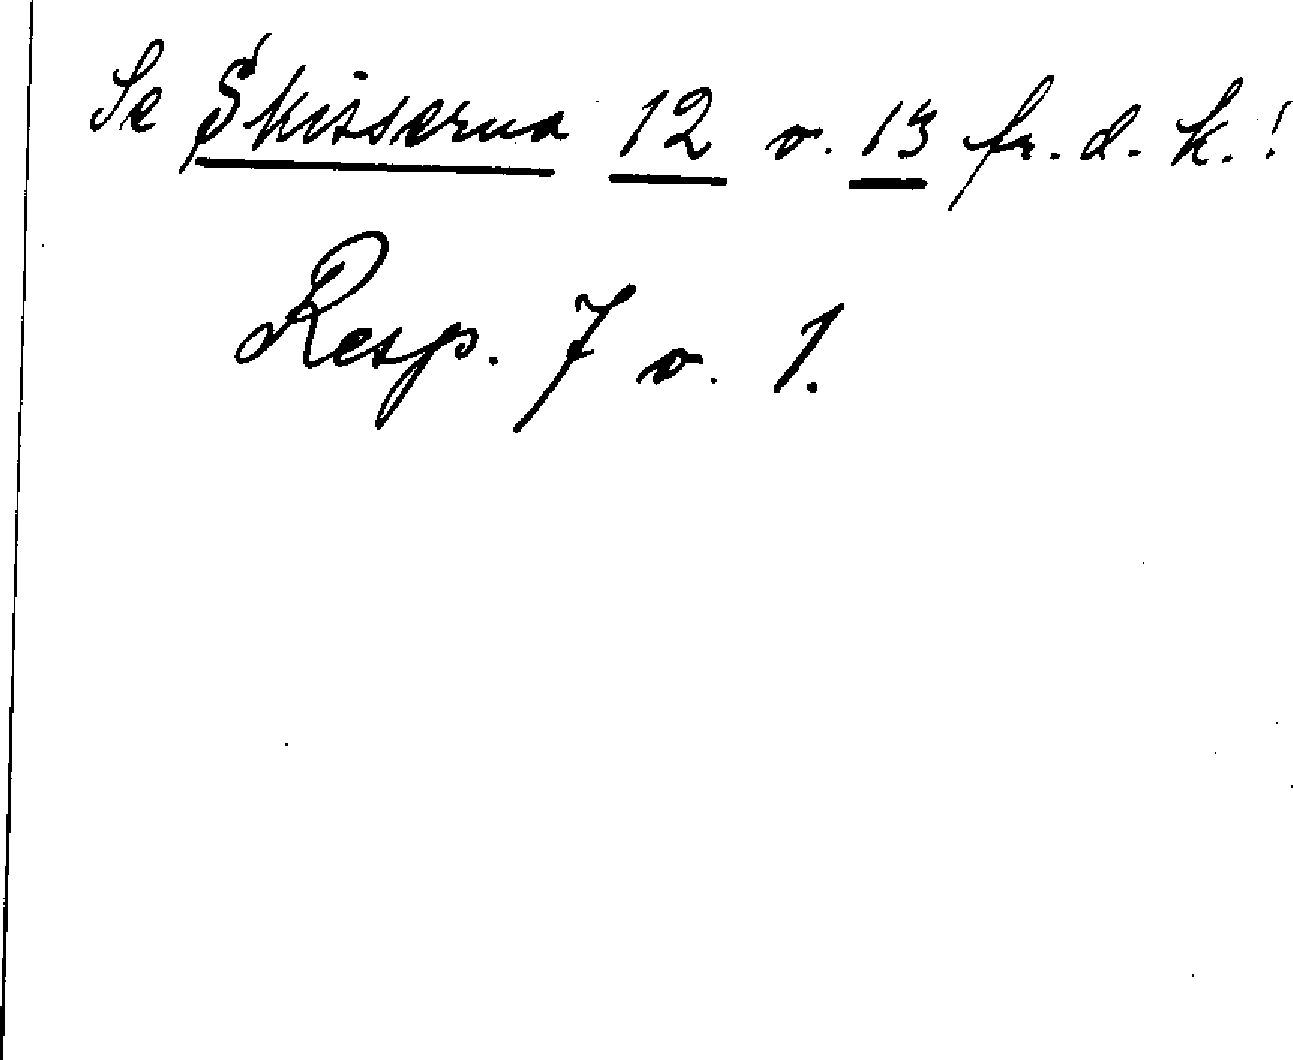 Se Skisserna 12 o. 13 fr. d. k.!
Resp. 7 o. 1.